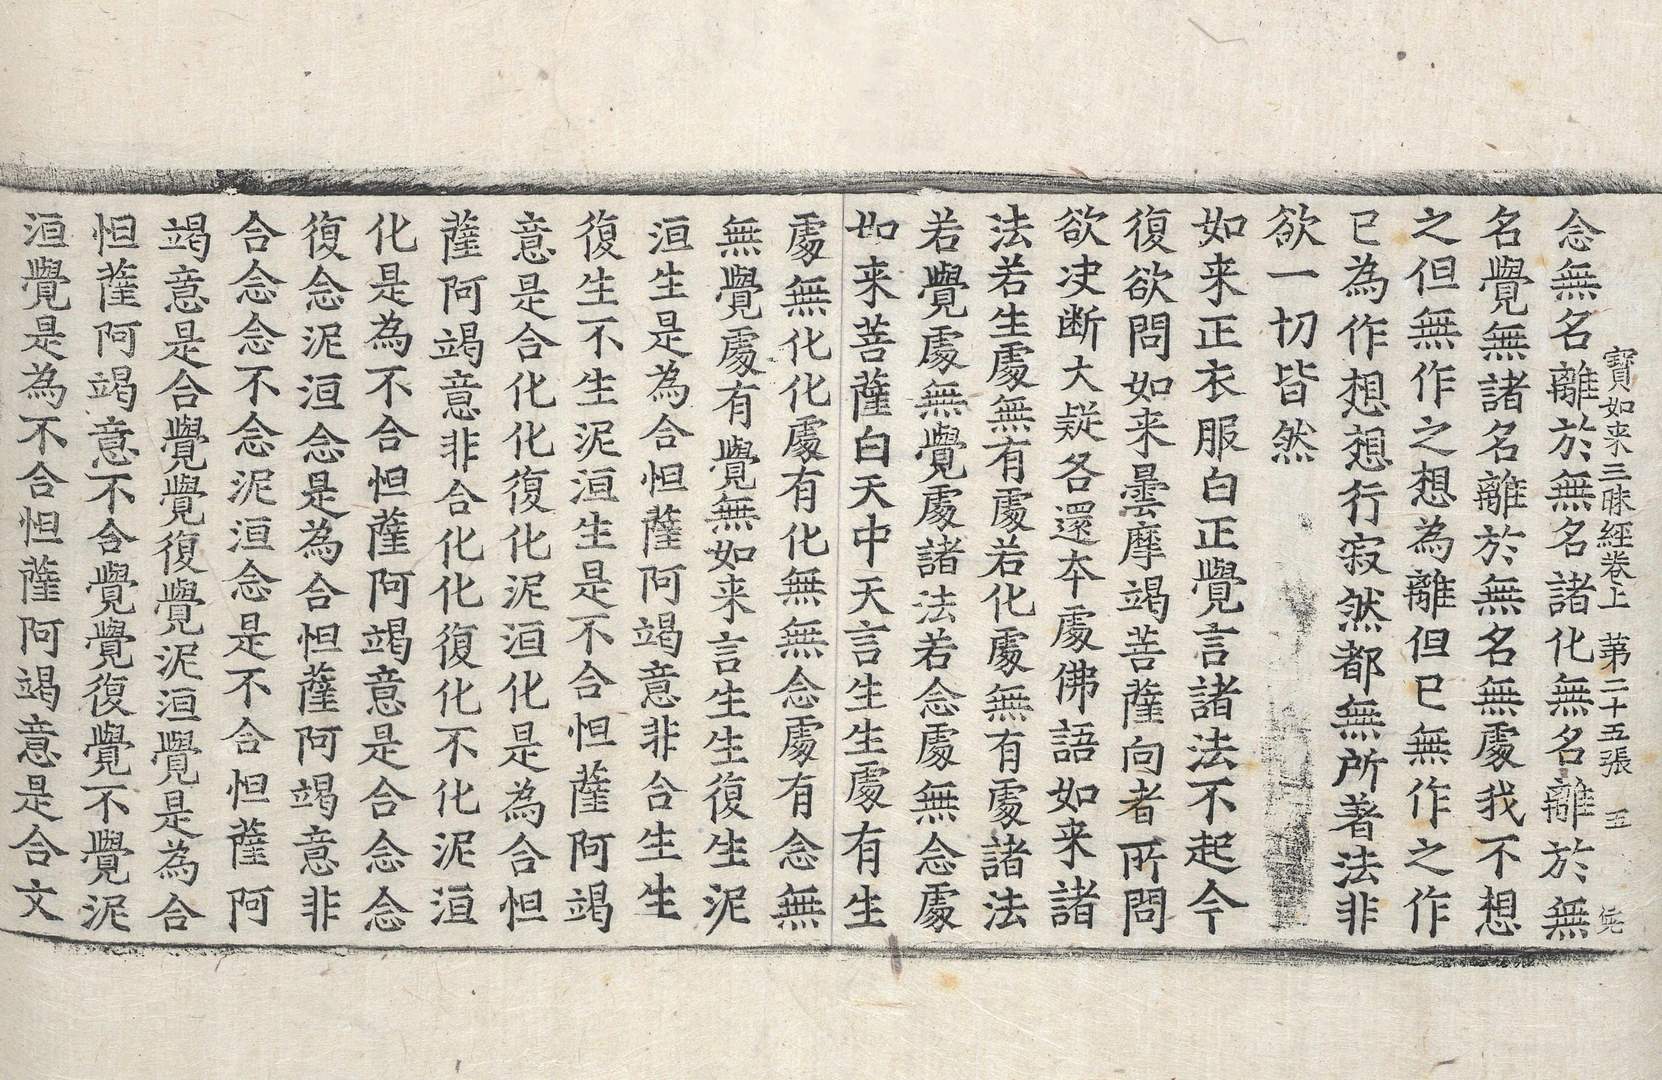 寳如来三昧經卷上　第二十五張　五
念無名離於無名諸化無名離於無
名覺無諸名離於無名無䖏我不想
之但無作之想為離但已無作之作
已為作想想行寂然都無所著法非
欲一切皆然
如来正衣服白正覺言諸法不起今
復欲問如来曇摩竭菩薩向者所問
欲决断大疑各還本䖏佛語如来諸
法若生䖏無有䖏若化䖏無有䖏諸法
若覺䖏無覺䖏諸法若念䖏無念䖏
如来菩薩白天中天言生生䖏有生
䖏無化化䖏有化無無念䖏有念無
無覺䖏有覺無如来言生生復生泥
洹生是為合怛薩阿竭意非合生生
復生不生泥洹生是不合怛薩阿竭
意是合化化復化泥洹化是為合怛
薩阿竭意非合化化復化不化泥洹
化是為不合怛薩阿竭意是合念念
復念泥洹念是為合怛薩阿竭意非
合念念不念泥洹念是不合怛薩阿
竭意是合覺覺復覺泥洹覺是為合
怛薩阿竭意不合覺覺復覺不覺泥
洹覺是為不合怛薩阿竭意是合文